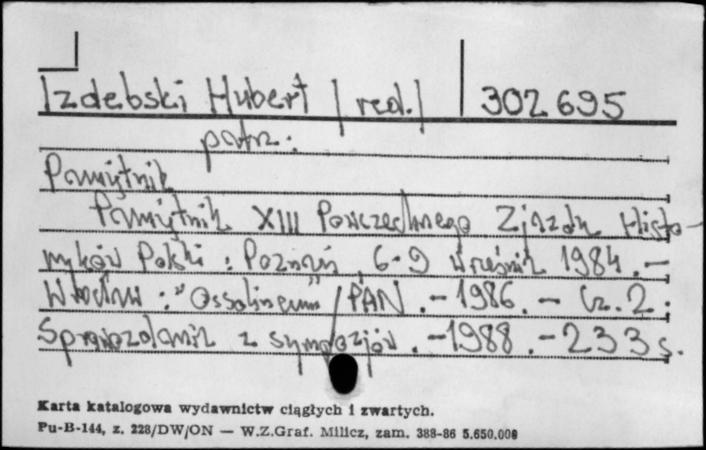 Izdebski Hubert /red./ 302 695
patrz:
Pamiętnik
Pamiętnik XIII Powszechnego Zjazdu Histo-
ryków Polski : Poznań, 6-9 wrześnik 1984. -
Wrocław : "Ossolineum" / PAN. - 1986. - Cz. 2:
Sprawozdanik z sympozjów. - 1988. - 233 s.
Karta katalogowa wydawnictw ciągłych i zwartych.
Pu-B-144, z. 228/DW/ON — W.Z.Graf. Milicz, zam. 388-86 5.650.000